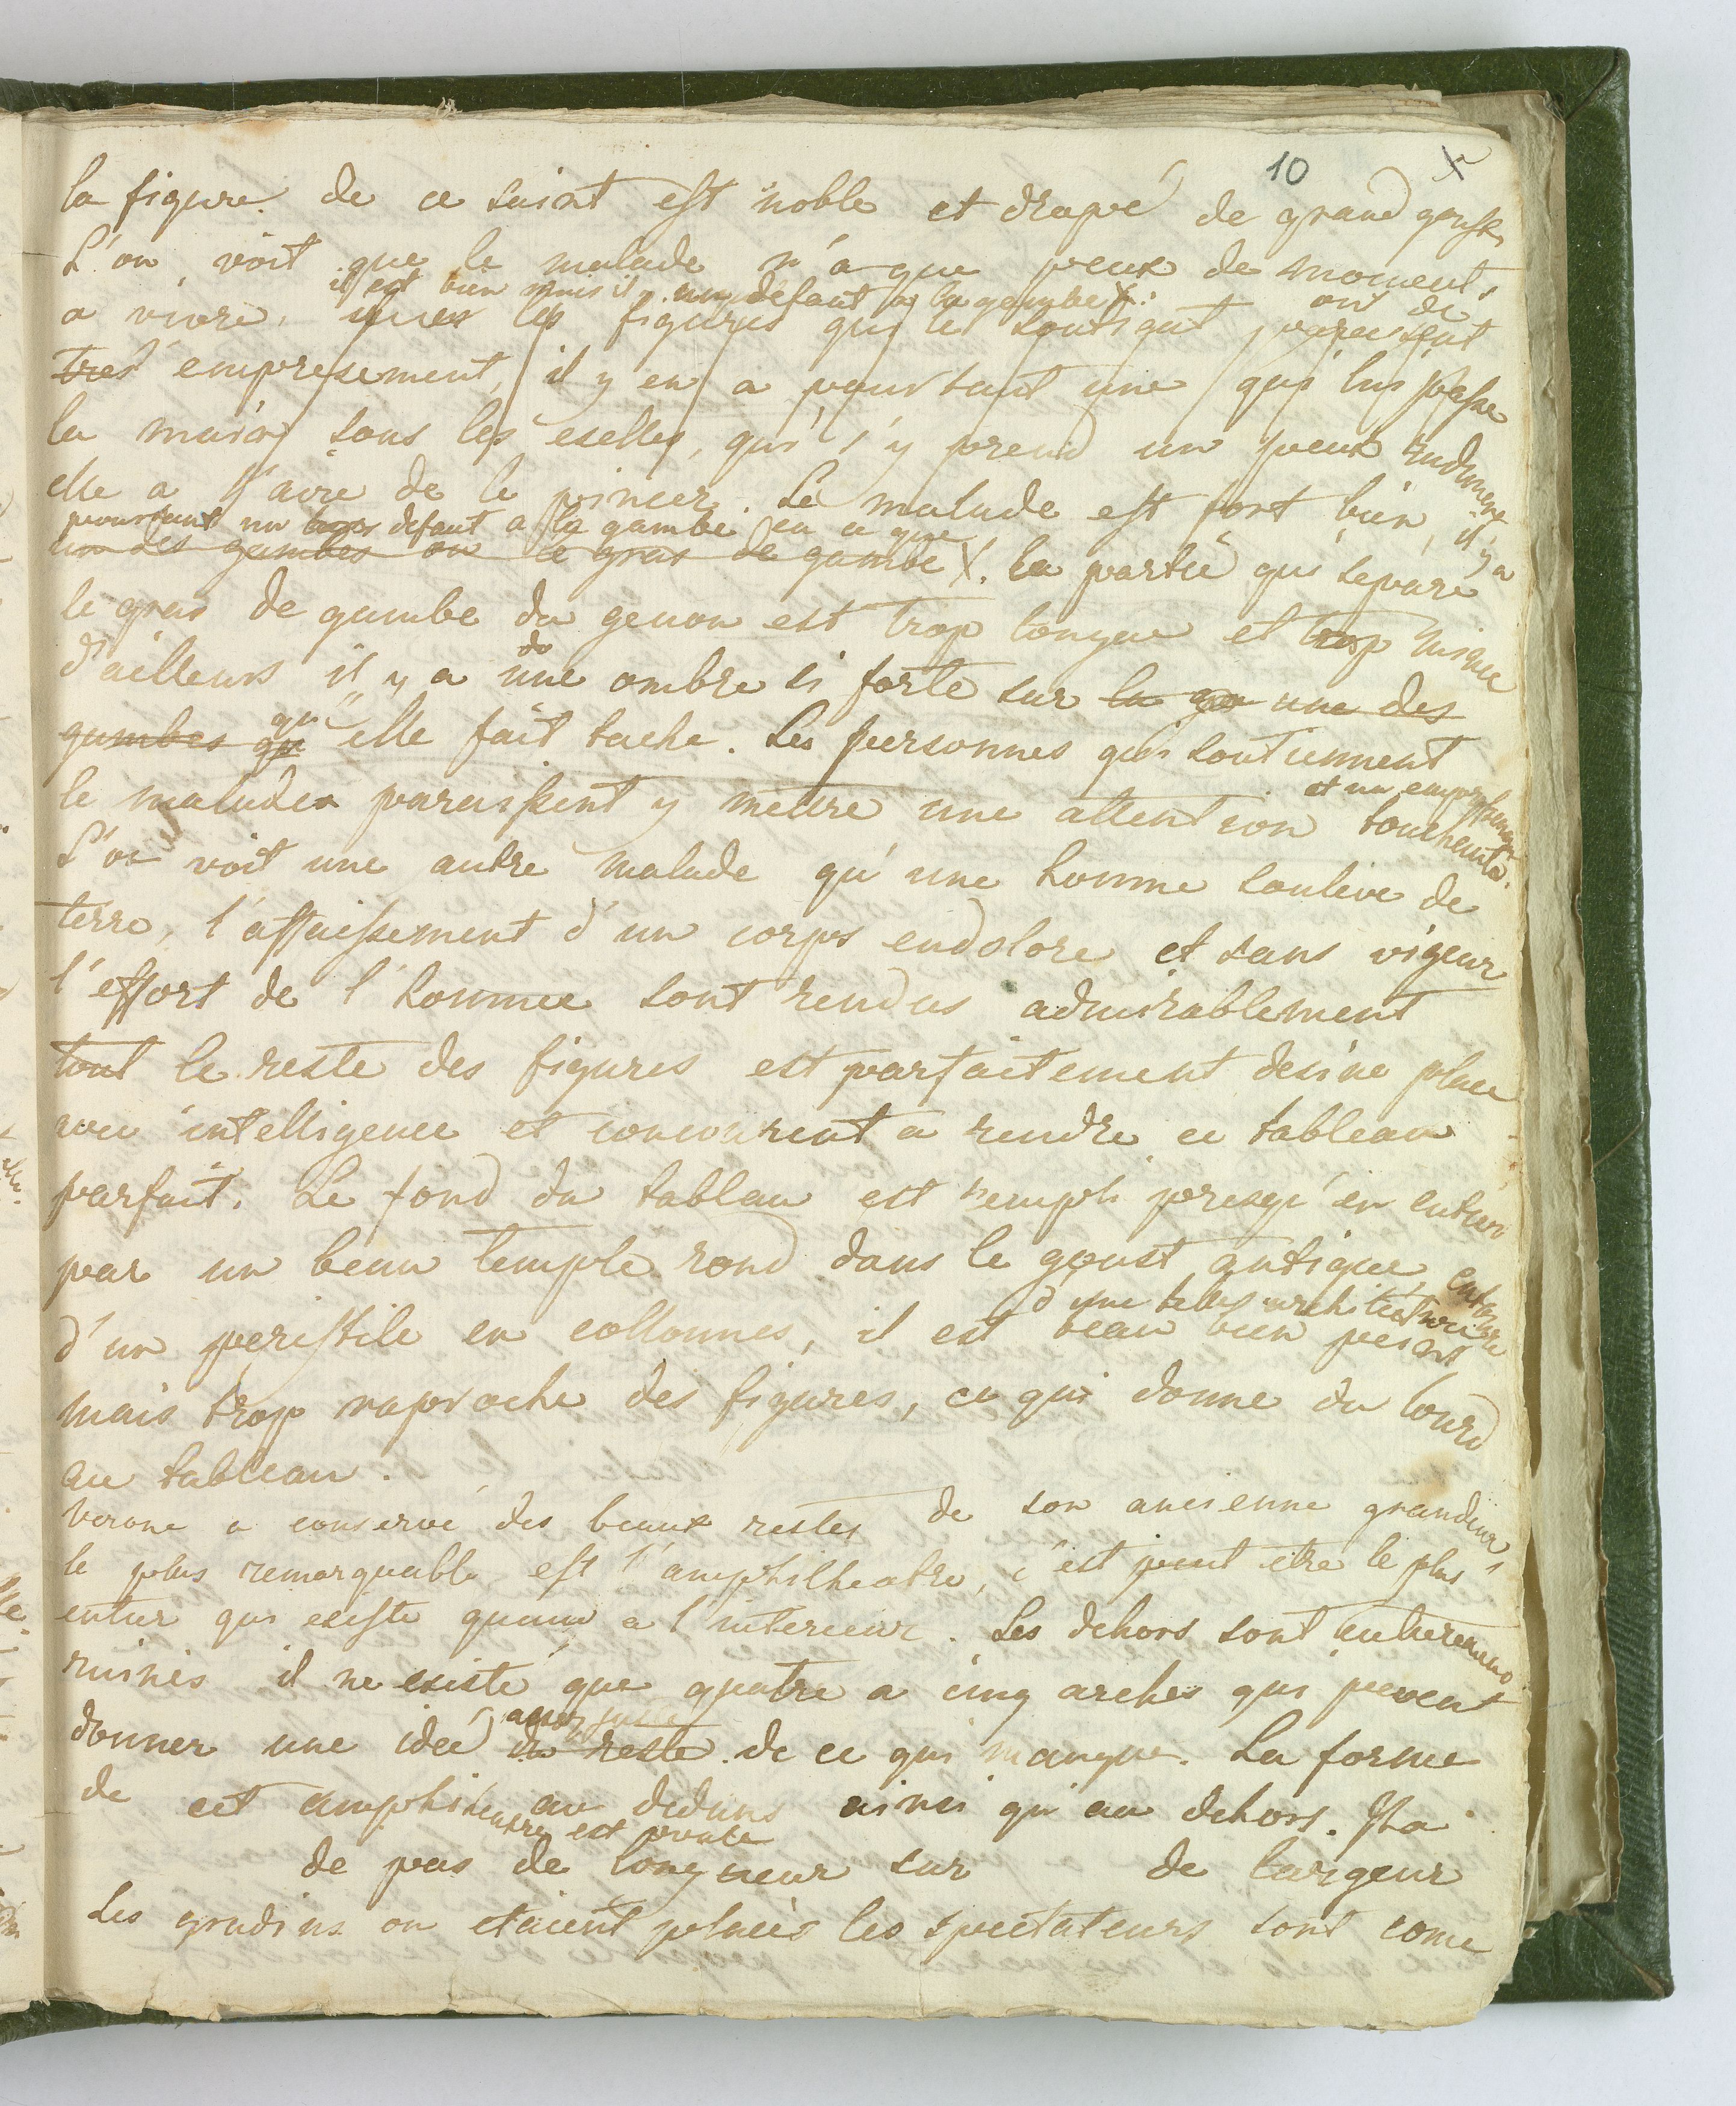 10
la figure de ce saint est noble et drapé de grand goust
L'on voit que le malade n'a que peux de moments
il est bien mais il y a un defaut a la gambe X.
a vivre, les figures qui le soutienent paraissent ont de
tres empresement, il y en a pourtant une qui lui passe
la main sous les eselles, qui s'y prend un peux rudement
elle a l'aire de le pincer. Le malade est fort bien, il y a
pourtant un defaut a la gambe en ce que
un des gambes ou le gras de gambe X. la partie qui separe
le gras de gambe du genou est trop longue et trop mince
d'ailleurs il y a une ombre si forte sur la une des
gambes qu'elle fait tache. Les personnes qui soutiennent
le malade paraissent y mettre une attention et un empressement touchente.
L'on voit une autre malade qu'une homme souleve de
terre, l'affaissement d'un corps endolore et sans vigeur
l'effort de l'homme sont rendus admirablement
tout le reste des figures est parfaitement desine place
avec intelligence et concourent a rendre ce tableau
parfait. Le fond du tableau est rempli presqu'en entier
par un beau temple rond dans le goust antique entouré
d'une belle architecture
d'un peristile en collonnes, il est beau bien peint
mais trop raproche des figures, ce qui donne du lourd
au tableau.
Verone a conservé des beaux restes de son ancienne grandeur,
le plus remarquable est l'amphitheatre, c'est peut etre le plus
entier qui existe quand a l'interieur. Les dehors sont entierement
ruinés il ne existe que quatre a cinq arches qui peuvent
assez juste
donner une idée du reste de ce qui manque. La forme
de cet amphiteatre est ovale au dedans ainsi qu'au dehors. Il a
de pas de longueur sur de largeur
Les gradins ou etaient placés les spectateurs sont come